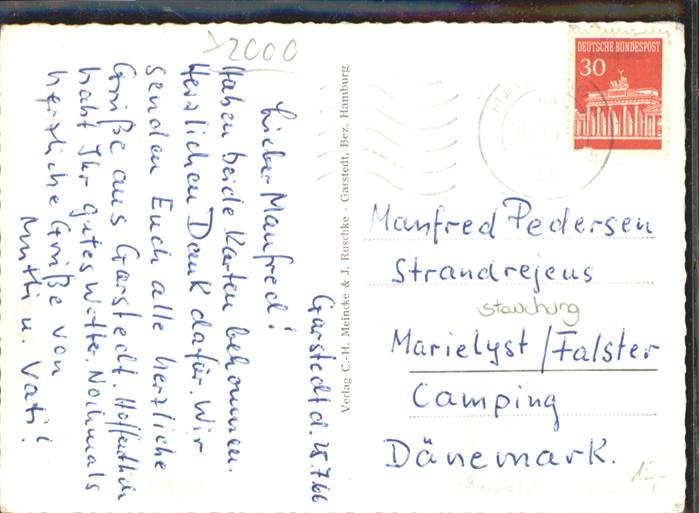 2000
Garstedt d. 25.7.66
Lieber Manfred!
Haben beide Karten bekommen.
Herzlichen Dank dafür. Wir
senden Euch alle herzliche
Grüße aus Garstedt. Hoffentlich
habt Ihr gutes Wetter. Nochmals
herzliche Grüße von
Mutti u. Vati!
Verlag C.-H. Meincke & J. Ruschke · Garstedt, Bez. Hamburg
DEUTSCHE BUNDESPOST
30
Manfred Pedersen
Strandrejeus
stauchung
Marielyst/Falster
Camping
Dänemark.